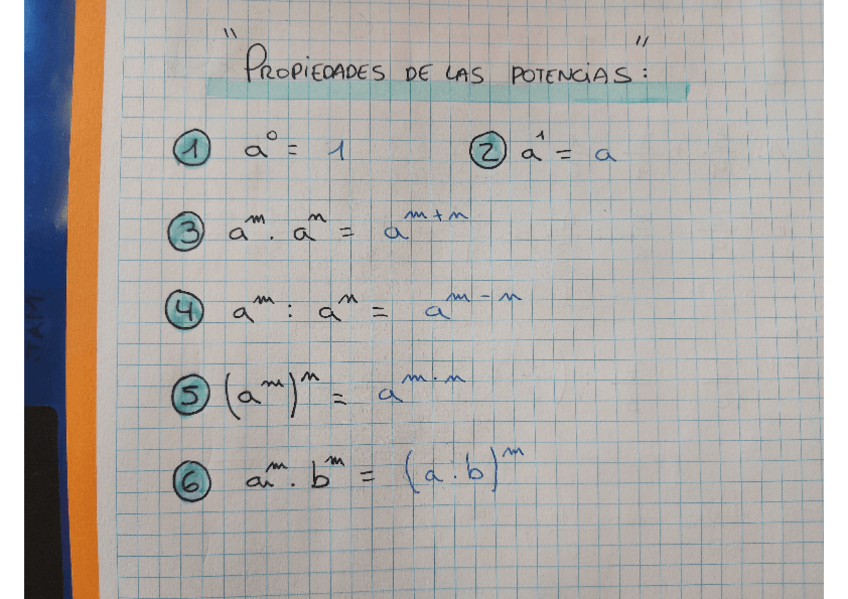 "Propiedades de las potencias":
① a⁰ = 1 ② a¹ = a
③ aᵐ · aⁿ = aᵐ⁺ⁿ
④ aᵐ : aⁿ = aᵐ⁻ⁿ
⑤ (aᵐ)ⁿ = aᵐ·ⁿ
⑥ aᵐ · bᵐ = (a · b)ᵐ